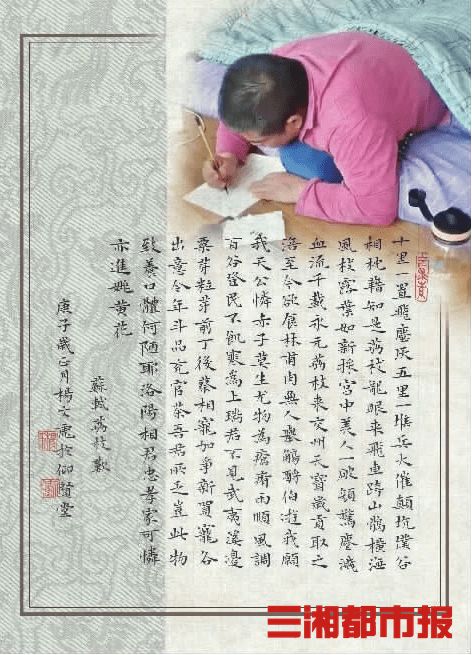 十里一置飛塵灰五里一堠兵火催顛坑僕谷
相枕藉知是荔枝龍眼來飛車跨山鶻橫海
風枝露葉如新採宮中美人一破顏驚塵濺
血流千載永元荔枝來交州天寶歲貢取之
涪至今欲食林甫肉無人舉觴酹伯游我願
我天公憐赤子莫生尤物為瘡痏雨順風調
百谷登民不飢寒為上瑞君不見武夷溪邊
粟芽粒芽前丁後蔡相寵加爭新買寵各
出意今年斗品充官茶吾君所乏豈此物
致養口體何陋耶洛陽相君忠孝家可憐
亦進姚黃花
蘇軾荔枝歎
庚子歲正月楊文虎於仰賢堂
三湘都市报